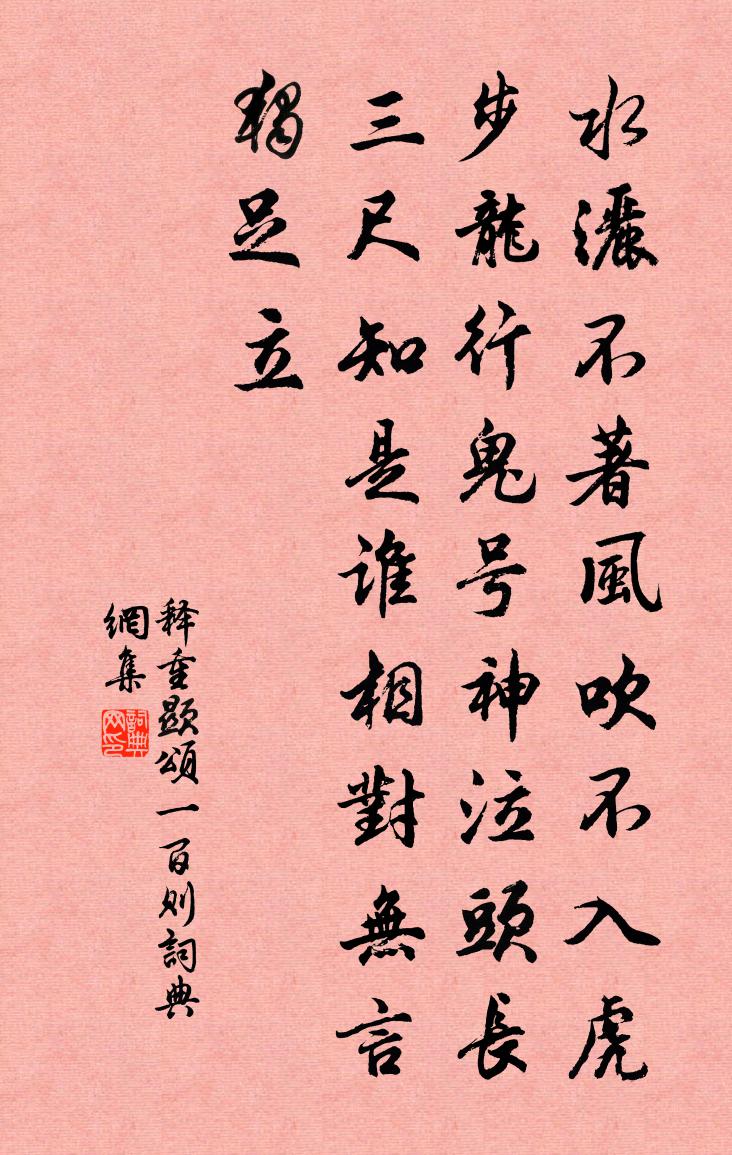 水灑不著風吹不入虎
步龍行鬼号神泣頭長
三尺知是誰相對無言
獨足立
释重顯頌一百则詞典
網集
詞典
网印